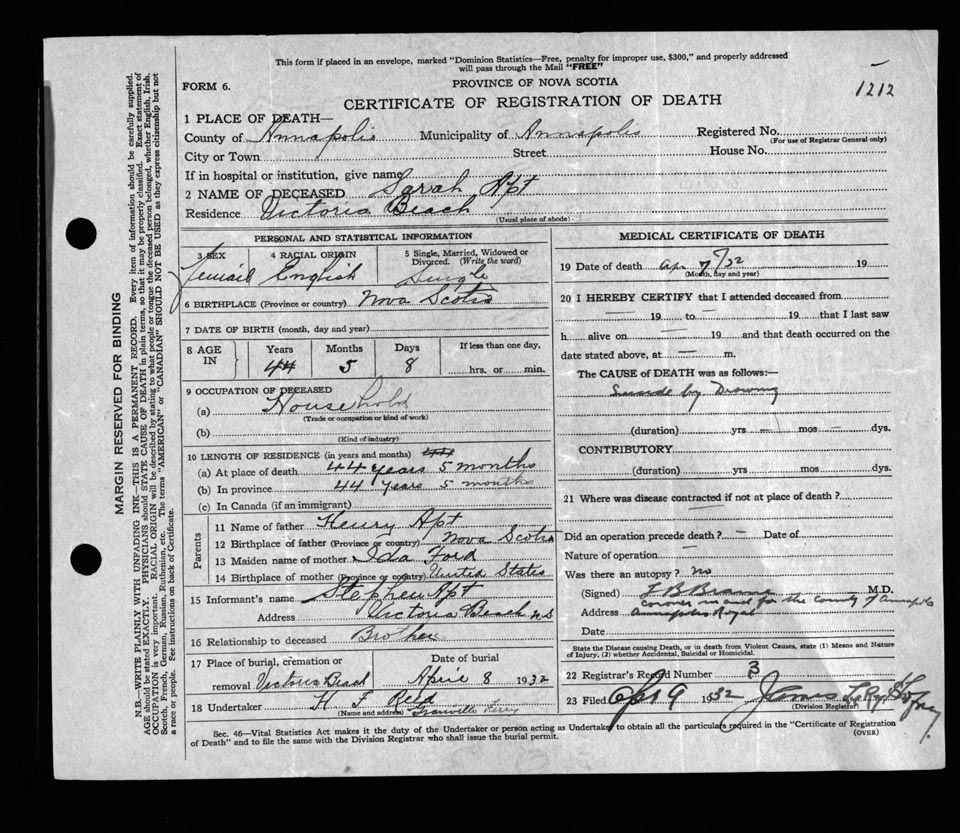 This form if placed in an envelope, marked "Dominion Statistics—Free, penalty for improper use, $300," and properly addressed
will pass through the Mail "FREE"
1212
FORM 6.
PROVINCE OF NOVA SCOTIA
CERTIFICATE OF REGISTRATION OF DEATH
MARGIN RESERVED FOR BINDING
N.B.—WRITE PLAINLY WITH UNFADING INK—THIS IS A PERMANENT RECORD. Every item of information should be carefully supplied.
AGE should be stated EXACTLY. PHYSICIANS should STATE CAUSE OF DEATH in plain terms, so that it may be properly classified. Exact statement of
OCCUPATION is very important. RACIAL ORIGIN will be described by stating to what people or tongue the deceased person belonged, whether English, Irish,
Scotch, French, German, Russian, Ruthenian, etc. The terms "AMERICAN" or "CANADIAN" SHOULD NOT BE USED as they express citizenship but not
a race or people. See instructions on back of Certificate.
1 PLACE OF DEATH—
County of Annapolis Municipality of Annapolis Registered No.
(For use of Registrar General only)
City or Town Street House No.
If in hospital or institution, give name
2 NAME OF DECEASED Sarah Apt
Residence Victoria Beach
(Usual place of abode)
PERSONAL AND STATISTICAL INFORMATION
3 SEX 4 RACIAL ORIGIN 5 Single, Married, Widowed or
Divorced. (Write the word)
Female English Single
6 BIRTHPLACE (Province or country) Nova Scotia
7 DATE OF BIRTH (month, day and year)
8 AGE IN Years Months Days If less than one day,
44 5 8 hrs. or min.
9 OCCUPATION OF DECEASED
(a) Household
(Trade or occupation or kind of work)
(b)
(Kind of industry)
10 LENGTH OF RESIDENCE (in years and months) 44
(a) At place of death 44 years 5 months
(b) In province 44 years 5 months
(c) In Canada (if an immigrant)
Parents
11 Name of father Henry Apt
12 Birthplace of father (Province or country) Nova Scotia
13 Maiden name of mother Ida Ford
14 Birthplace of mother (Province or country) United States
15 Informant's name Stephen Apt
Address Victoria Beach N.S
16 Relationship to deceased Brother
17 Place of burial, cremation or Date of burial
removal Victoria Beach April 8 1932
18 Undertaker H F
(Name and address) Granville Ferry
MEDICAL CERTIFICATE OF DEATH
19 Date of death Apr 7/32 19
(Month, day and year)
20 I HEREBY CERTIFY that I attended deceased from
— 19 to — 19 that I last saw
h alive on — 19 and that death occurred on the
date stated above, at — m.
The CAUSE of DEATH was as follows:—
Suicide by Drowning
(duration) yrs — mos — dys.
CONTRIBUTORY
(duration) yrs mos dys.
21 Where was disease contracted if not at place of death?
—
Did an operation precede death? — Date of
Nature of operation —
Was there an autopsy? no
(Signed) M.D.
coroner in and for the county of Annapolis
Address Annapolis Royal
Date
State the Disease causing Death, or in death from Violent Causes, state (1) Means and
Nature of Injury, (2) whether Accidental, Suicidal or Homicidal.
22 Registrar's Record Number 3
23 Filed Apl 9 1932 James
(Division Registrar)
Sec. 46—Vital Statistics Act makes it the duty of the Undertaker or person acting as Undertaker to obtain all the particulars required in the "Certificate of Registration
of Death" and to file the same with the Division Registrar who shall issue the burial permit.
(OVER)